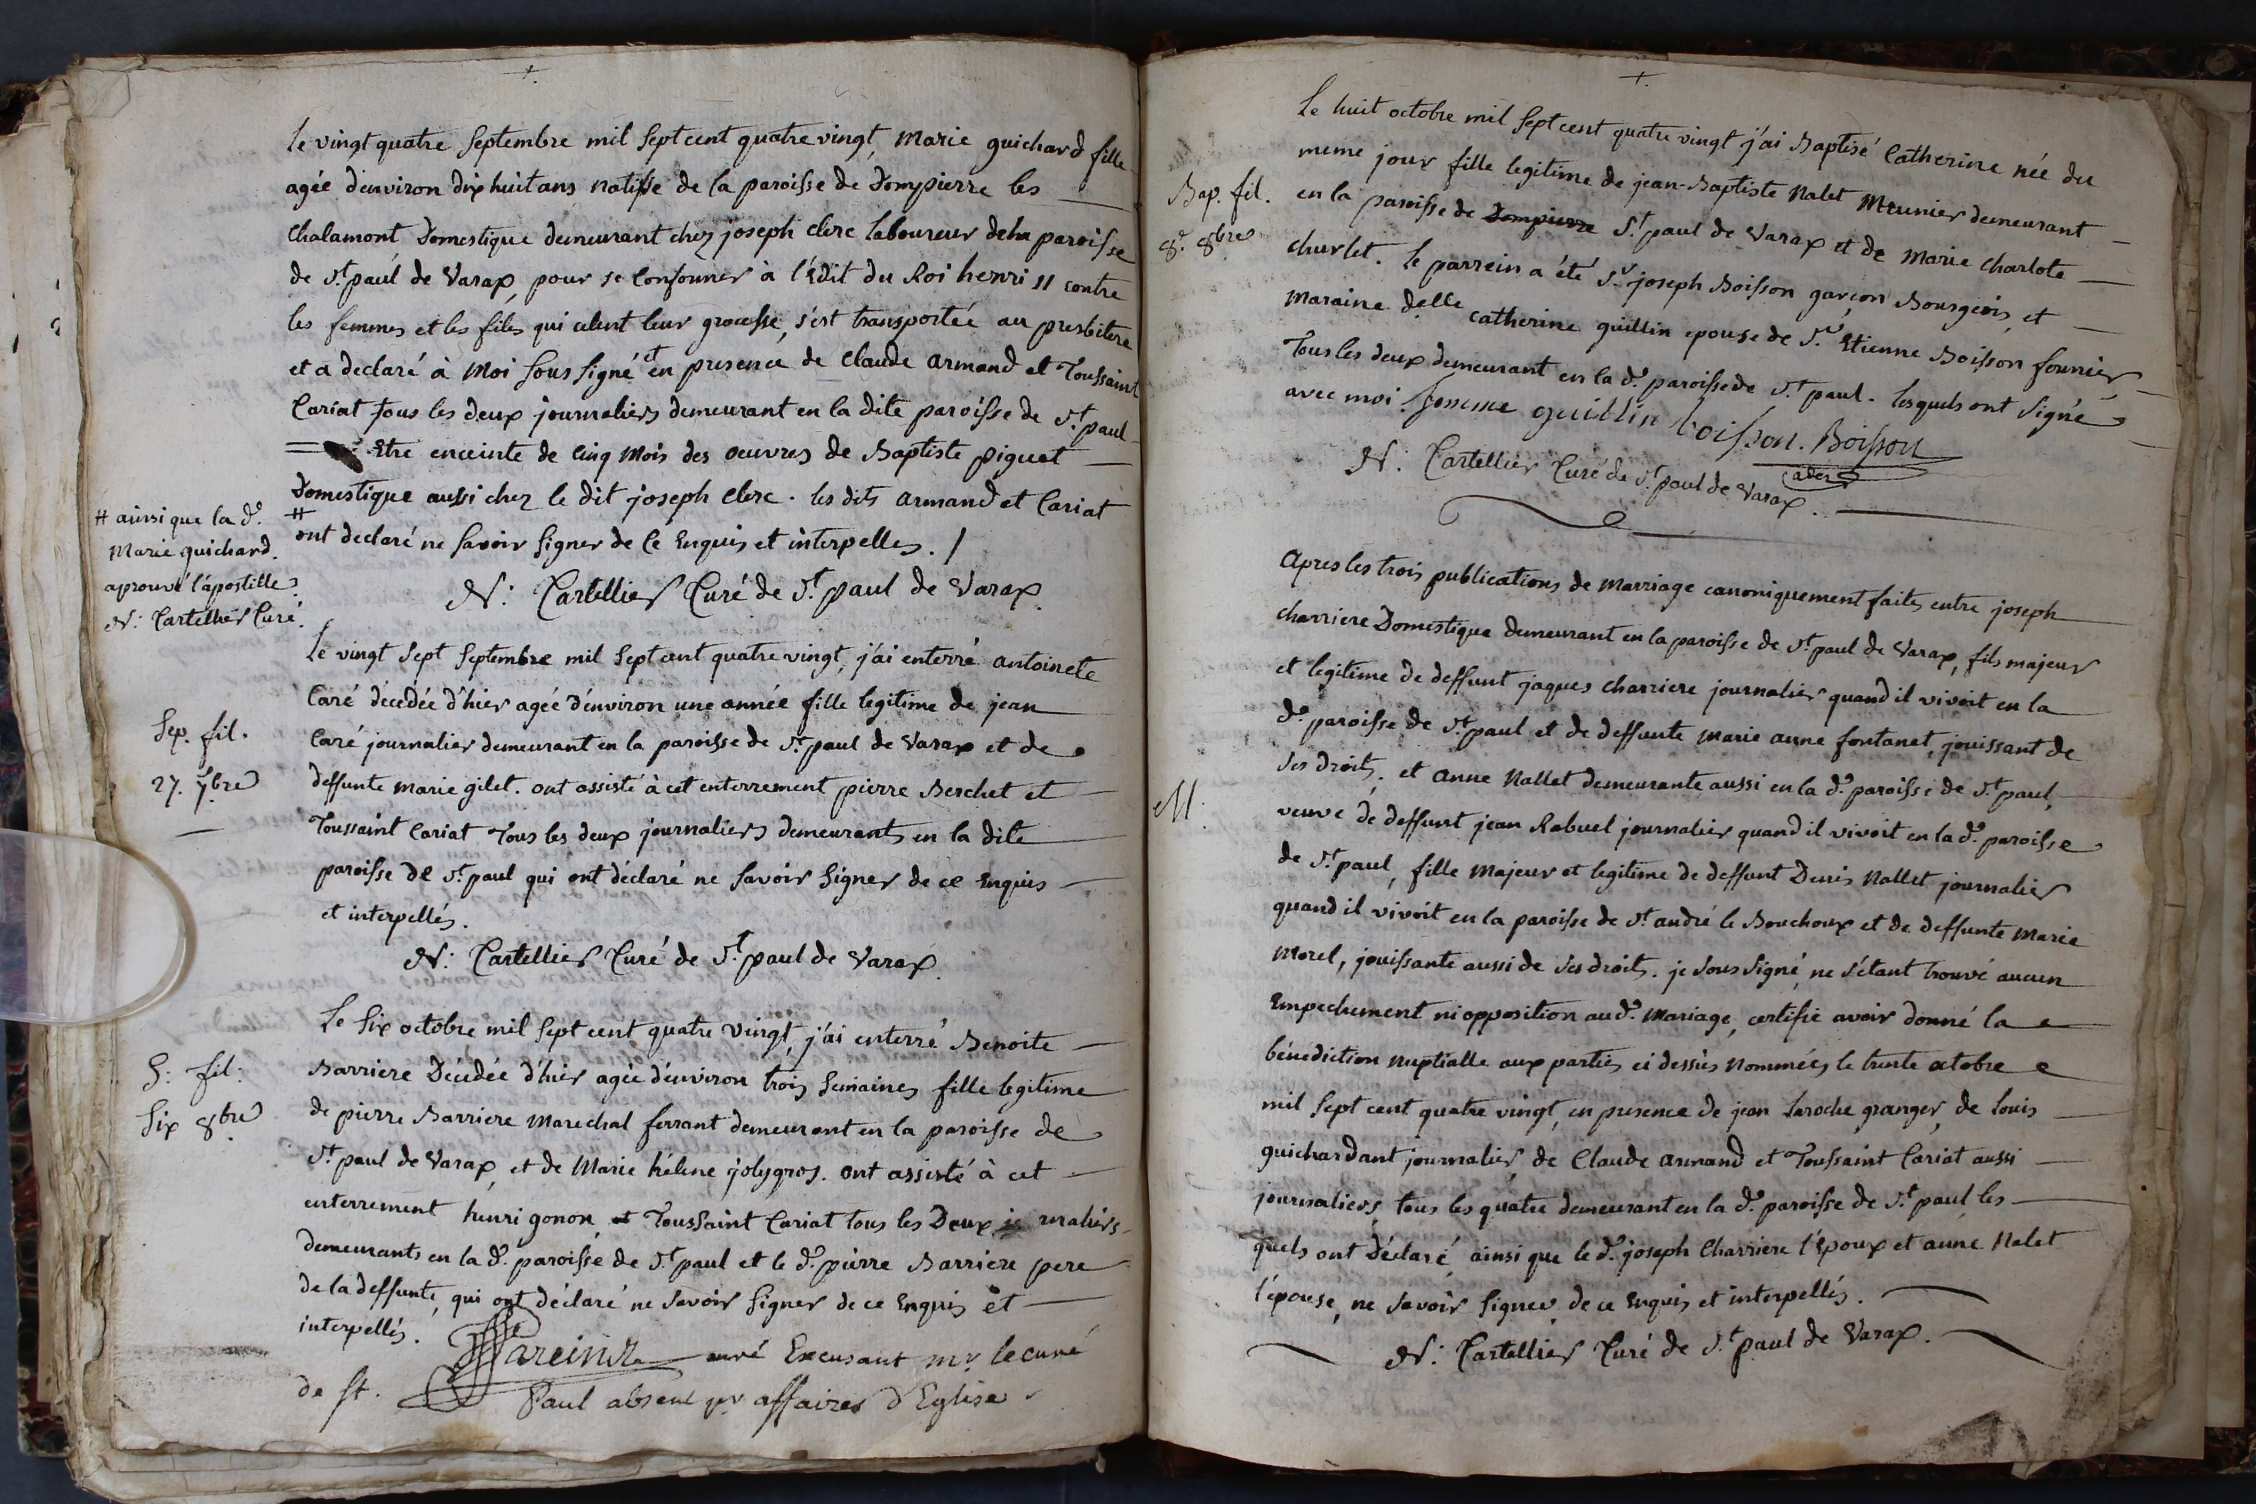 le vingt quatre septembre mil sept cent quatre vingt, Marie guichard fille
agée d'environ dix huit ans natifse de la paroisse de Dompierre les
Chalamont Domestique demeurant chez joseph clerc laboureur de la paroisse
de St. paul de Varax, pour se conformer à l'Edit du Roi henri II contre
les femmes et les filles qui celent leur grocesse, s'est transportée au presbitere
et a declaré à Moi sous signé et en presence de Claude armand et Toussaint
Cariat tous les deux journaliers demeurant en la dite paroisse de St. paul
Etre enceinte de Cinq Mois des oeuvres de Baptiste piguet
Domestique aussi chez le dit joseph clerc. les dits armand et Cariat
# ont declaré ne savoir signer de Ce Enquis et interpelles. /
# ainsi que la de.
Marie guichard.
aprouvé l'apostille
N: Cartellier Curé.
N: Cartellier Curé de St. paul de Varax.
Sep. fil.
27. 7bre
Le vingt sept septembre mil sept cent quatre vingt, j'ai enterré antoinete
Caré décedée d'hier agée d'environ une année fille legitime de jean
Caré journalier demeurant en la paroisse de St. paul de Varax et de
deffunte marie gilet. ont assisté à cet enterrement pierre Berchet et
Toussaint Cariat Tous les deux journaliers demeurants en la dite
paroisse de St. paul qui ont déclaré ne savoir signer de ce Enquis
et interpellés.
N: Cartellier Curé de St. paul de Varax.
S: fil:
Six 8bre
Le Six octobre mil sept cent quatre vingt, j'ai enterré Benoite
Barriere Décédée d'hier agée d'environ trois semaines fille legitime
de pierre Barriere Marechal ferrant demeurant en la paroisse de
St. paul de Varax, et de Marie hélene jolygros. ont assisté à cet
enterrement henri gonon et Toussaint Cariat tous les Deux journaliers
demeurants en la de. paroisse de St. paul et le d. pierre Barriere pere
de la deffunte, qui ont déclaré ne savoir signer de ce Enquis et
interpellés.
curé Excusant mr le curé
de st. Paul absent pr affaires d'Eglise
Bap. fil.
8e. 8bre
Le huit octobre mil sept cent quatre vingt j'ai Baptisé Catherine née du
meme jour fille legitime de jean-Baptiste Nalet Meunier demeurant
en la paroisse de Dompierre St. paul de Varax et de Marie Charlote
churlet. le parrein a été Sr. joseph Boisson garçon Bourgeois, et
Maraine delle catherine guillin epouse de Sr. Etienne Boisson fermier
Tous les deux demeurant en la de. paroisse de St. paul. lesquels ont signé
avec moi. femme guillin boisson. Boisson
cadet
N: Cartellier Curé de St. paul de Varax.
M.
Apres les trois publications de Marriage canoniquement faites entre joseph
charriere Domestique demeurant en la paroisse de St. paul de Varax, fils majeur
et legitime de deffunt jaques charriere journalier quand il vivoit en la
de. paroisse de St. paul et de deffunte Marie anne fontanet, jouissant de
ses droits. et Anne Nallet demeurante aussi en la de. paroisse de St. paul,
veuve de deffunt jean Rabuel journalier quand il vivoit en la de. paroisse
de St. paul, fille Majeur et legitime de deffunt Denis Nallet journalier
quand il vivoit en la paroisse de St. andré le Bouchoux et de deffunte Marie
Morel, jouissante aussi de ses droits. je sous signé, ne s'étant trouvé aucun
Empechement ni opposition au d. Mariage, certifie avoir donné la
bénediction nuptialle aux parties ci dessus Nommées le trente octobre
mil sept cent quatre vingt, en presence de jean Laroche granger, de Louis
guichardant journalier, de Claude armand et Toussaint Cariat aussi
journaliers, tous les quatre demeurant en la de. paroisse de St. paul les
quels ont Déclaré, ainsi que le d. joseph Charriere l'époux et anne Nalet
l'épouse, ne savoir signer de ce Enquis et interpellés.
N: Cartellier Curé de St. paul de Varax.